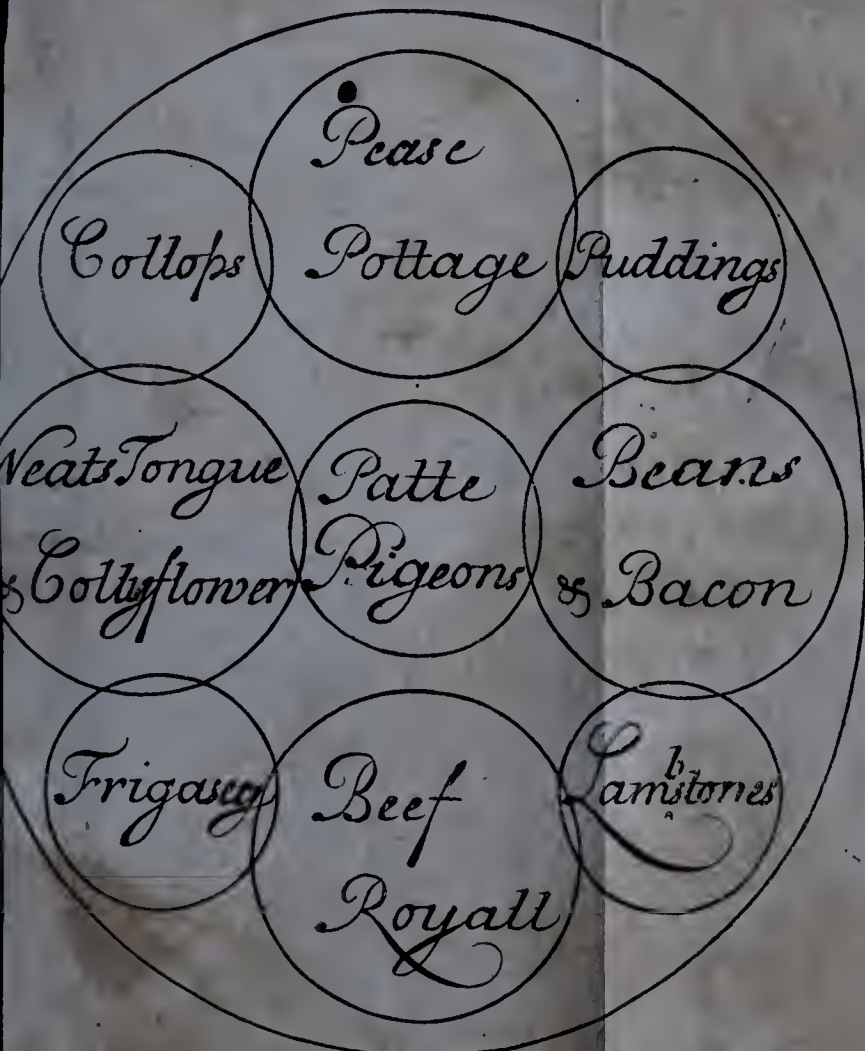 Pease
Pottage
Collops
Puddings
Neats Tongue
& Collyflower
Patte
Pigeons
Beans
& Bacon
Frigasey
Beef
Royall
Lambstones